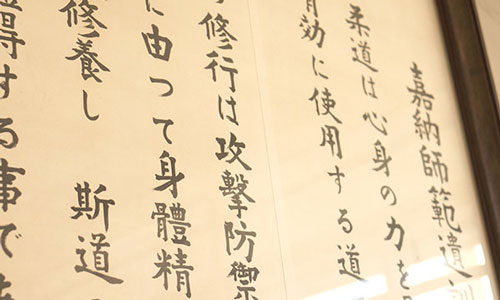 嘉納師範遺訓
柔道は心身の力を
有効に使用する道
修行は攻撃防禦
に由つて身體精
修養し 斯道
得する事で